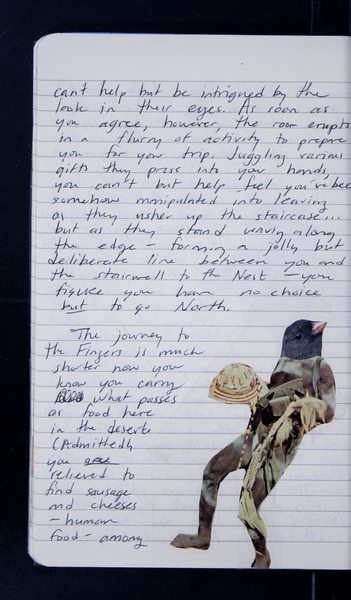 can't help but be intrigued by the
look in their eyes. As soon as
you agree, however, the room erupts
in a flurry of activity to prepare
you for your trip. Juggling various
gifts they press into your hands,
you can't but help feel you've been
somehow manipulated into leaving
as they usher up the staircase...
but as they stand waving along
the edge - forming a jolly but
deliberate line between you and
the stairwell to the Nest - you
figure you have no choice
but to go North.
The journey to
the Fingers is much
shorter now you
know you carry
what passes
as food here
in the desert.
(Admittedly
you are
relieved to
find sausage
and cheeses
- human
food - among